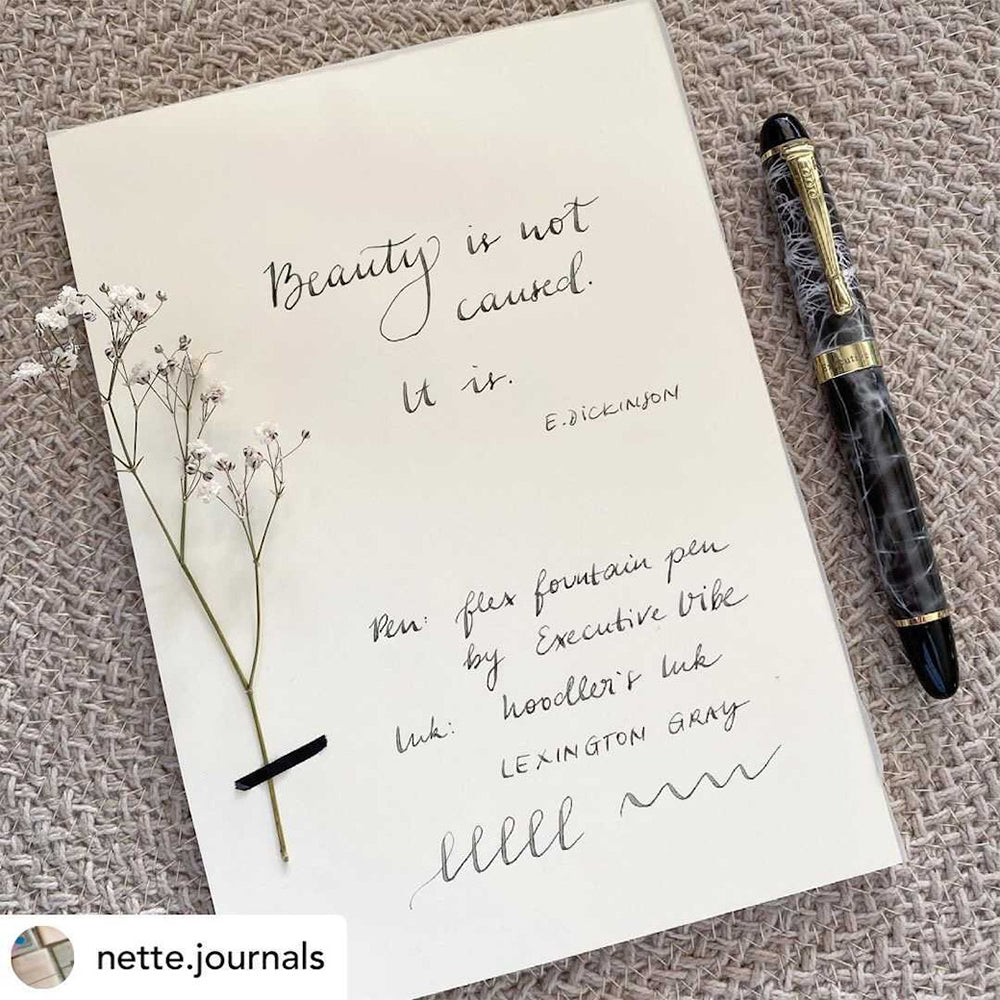 Beauty is not
caused.
It is.
E. DICKINSON
Pen: flex fountain pen
by Executive Vibe
Ink: Noodler's Ink
LEXINGTON GRAY
nette.journals